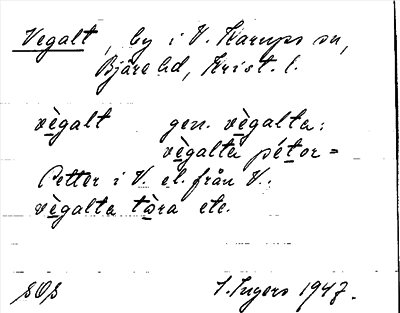 Vegalt, by i V. Karups sn,
Bjäre hd, Krist. l.
vègalt gen. vègalta:
vègalta pétor =
Petter i V. el. från V.
vègalta tàra etc.
SOS I. Ingers 1947.